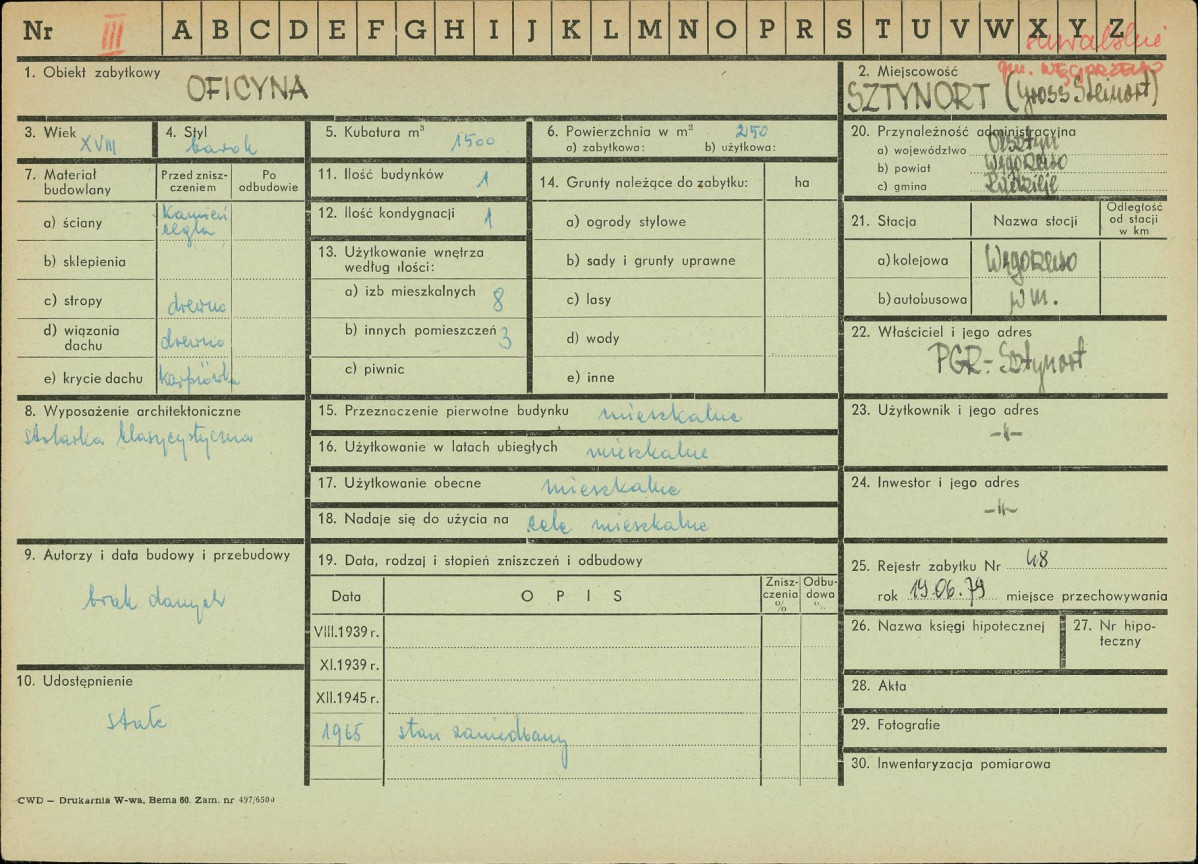 Nr III A B C D E F G H I J K L M N O P R S T U V W X Y Z
suwalskie
gm. WĘGORZEWO
1. Obiekt zabytkowy
OFICYNA
2. Miejscowość
SZTYNORT (Gross Steinort)
3. Wiek
XVIII
4. Styl
barok
5. Kubatura m³ 1500
6. Powierzchnia w m² 250
a) zabytkowa: b) użytkowa:
7. Materiał budowlany
Przed znisz-
czeniem
Po
odbudowie
a) ściany kamień
cegła
b) sklepienia
c) stropy drewno
d) wiązania
dachu drewno
e) krycie dachu karpiówka
8. Wyposażenie architektoniczne
stolarka klasycystyczna
9. Autorzy i data budowy i przebudowy
brak danych
10. Udostępnienie
stałe
11. Ilość budynków 1
12. Ilość kondygnacji 1
13. Użytkowanie wnętrza
według ilości:
a) izb mieszkalnych 8
b) innych pomieszczeń 3
c) piwnic
14. Grunty należące do zabytku: ha
a) ogrody stylowe
b) sady i grunty uprawne
c) lasy
d) wody
e) inne
15. Przeznaczenie pierwotne budynku mieszkalne
16. Użytkowanie w latach ubiegłych mieszkalne
17. Użytkowanie obecne mieszkalne
18. Nadaje się do użycia na cele mieszkalne
19. Data, rodzaj i stopień zniszczeń i odbudowy
Data OPIS
Znisz-
czenia
%
Odbu-
dowa
%
VIII.1939 r.
XI.1939 r.
XII.1945 r.
1965 stan zaniedbany
20. Przynależność administracyjna
a) województwo Olsztyn
b) powiat Węgorzewo
c) gmina
21. Stacja Nazwa stacji
Odległość
od stacji
w km
a) kolejowa Węgorzewo
b) autobusowa w m.
22. Właściciel i jego adres
PGR - Sztynort
23. Użytkownik i jego adres
-"-
24. Inwestor i jego adres
-"-
25. Rejestr zabytku Nr 48
rok 19.06.79 miejsce przechowywania
26. Nazwa księgi hipotecznej
27. Nr hipo-
teczny
28. Akta
29. Fotografie
30. Inwentaryzacja pomiarowa
CWD — Drukarnia W-wa, Bema 60. Zam. nr 497/6500